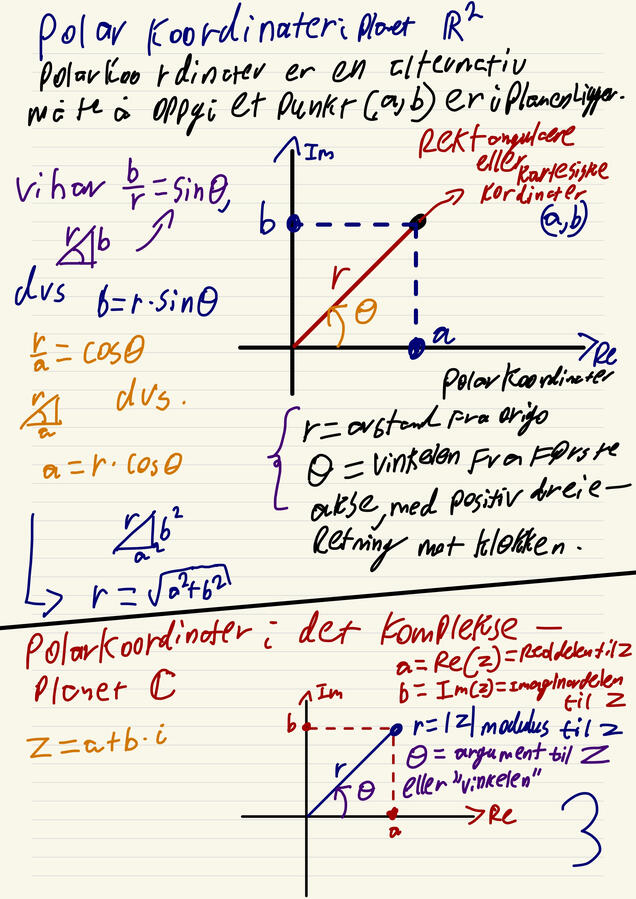 Polar Koordinater i planet ℝ²
Polarkoordinater er en alternativ
måte å oppgi et punkt (a,b) er i planen ligger.
Im
Rektangulære
eller
kartesiske
kordinater
(a,b)
vi har b/r = sinθ,
r b
b
r
θ
dvs b = r·sinθ
a
Re
r/a = cosθ
r
a
dvs.
a = r·cosθ
Polarkoordinater
r = avstand fra origo
θ = vinkelen fra første
akse, med positiv dreie–
Retning mot klokken.
r b²
a²
r = √a²+b²
Polarkoordinater i det komplekse –
planet ℂ
a = Re(z) = Realdelen til z
b = Im(z) = imaginærdelen
til z
z = a+b·i
Im
b
r = |z| modulus til z
θ = argument til z
eller "vinkelen"
r
θ
Re
a
3